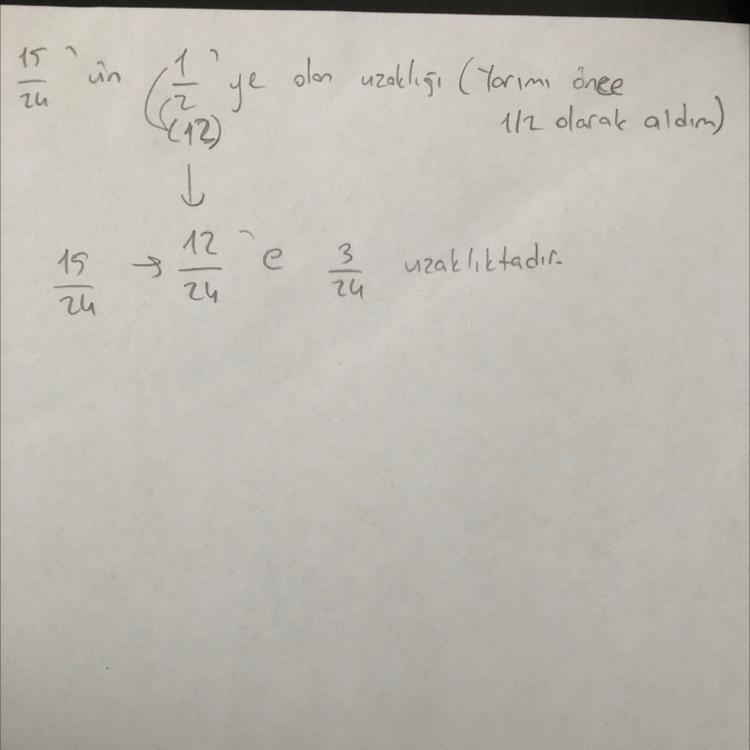 15/24 'ün 1/2 'ye olan uzaklığı (Yarımı önce
(12) 1/2 olarak aldım)
↓
15/24 → 12/24 'e 3/24 uzaklıktadır.